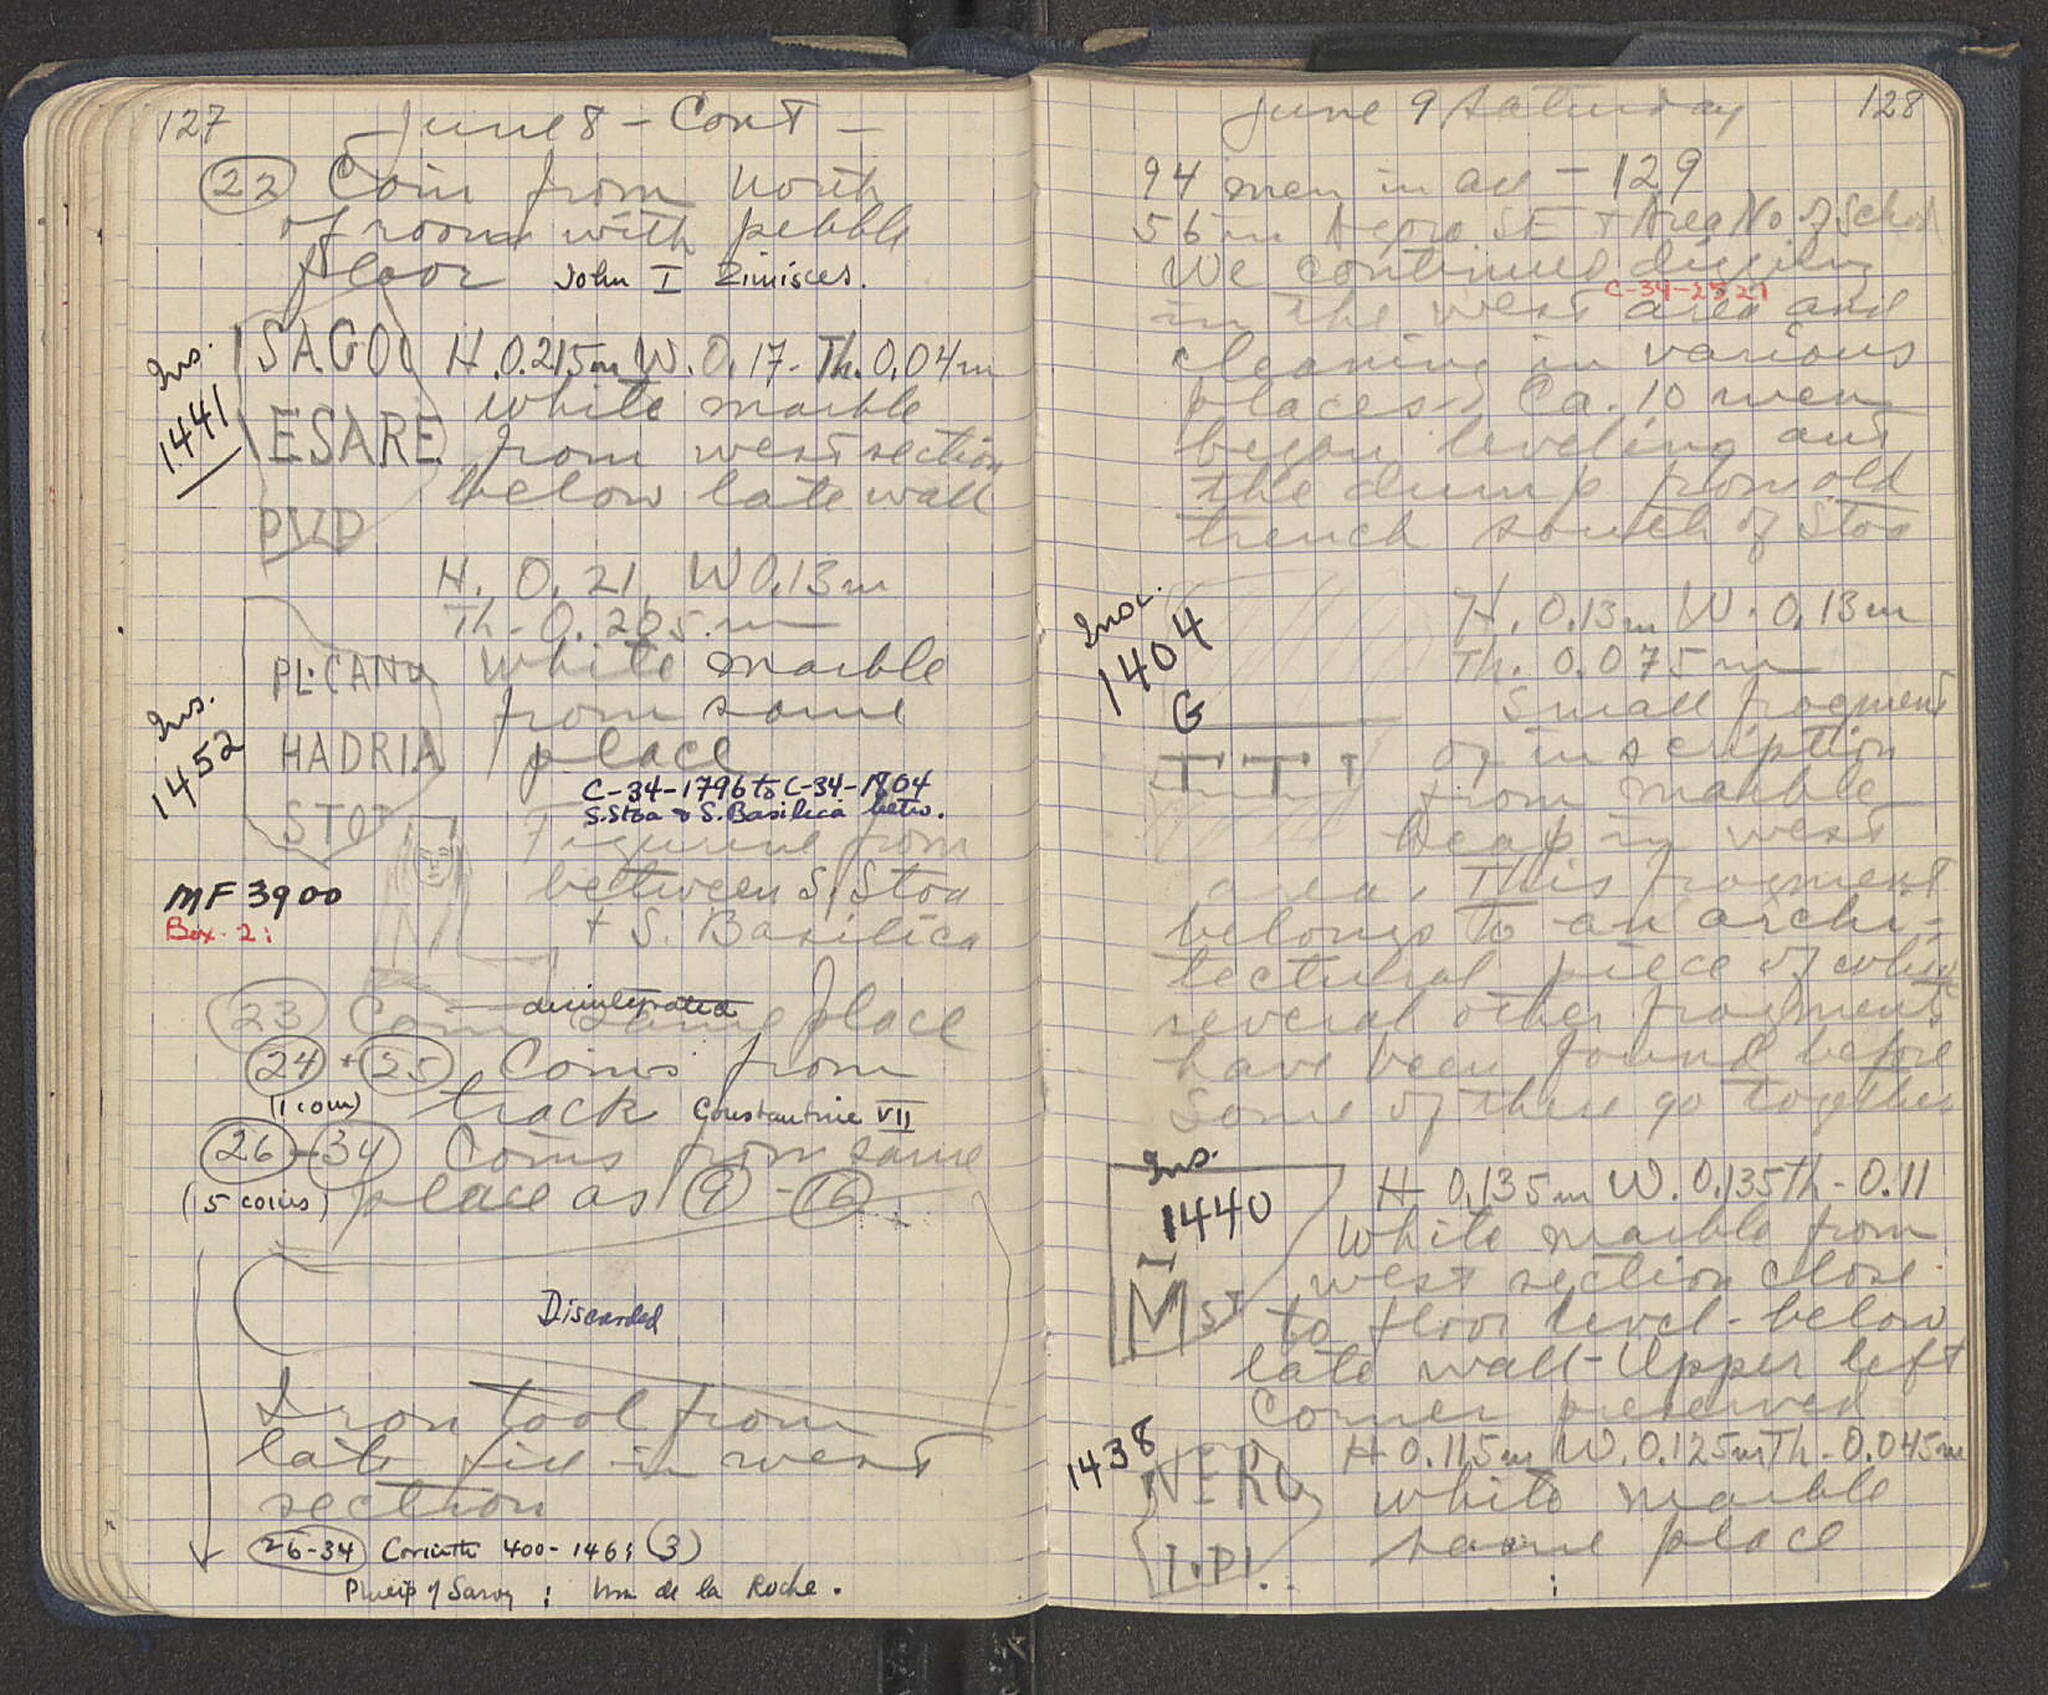 127
June 8 - Cont -
22 Coin from North
of room with pebble
floor John I Zimisces.
Ins. 1441
SAGO
H. 0.215m W. 0.17 - Th. 0.04m
white marble
ESARE from west section
below late wall
PVD
H. 0.21 W 0.13m
Th - 0.205 m
Ins. 1452
PL·CAN white marble
from same
HADRIA place
C-34-1796 to C-34-1804
S. Stoa & S. Basilica betw.
STO
Figurine from
between S. Stoa
+ S. Basilica
MF 3900
Box 2:
disintegrated
23 Coin same place
24 + 25 Coins from
(1 coin) track Constantine VII
26 - 34 Coins from same
(5 coins) place as 9 - 16
Discarded
Iron tool from
late fill in west
section
26-34 Corinth 400-146; (3)
Philip of Savoy ; Wm de la Roche.
June 9 Saturday 128
94 men in all - 129
56 in Agora SE + Area No. of School
We continued digging
C-34-2521
in the west area and
cleaning in various
places. Ca. 10 men
began leveling out
the dump from old
trench south of Stoa
H. 0.13m W. 0.13m
Th. 0.075m
1404
G
Small fragment
of inscription
from marble
heap in west
area. This fragment
belongs to an archi-
tectural piece of which
several other fragments
have been found before
Some of these go together
Ins. 1440
H 0.135m W. 0.135 Th - 0.11
white marble from
west section close
to floor level - below
late wall - Upper left
corner preserved
M ST
1438
H 0.115m W. 0.125m Th - 0.045m
NERO white marble
same place
I·PI